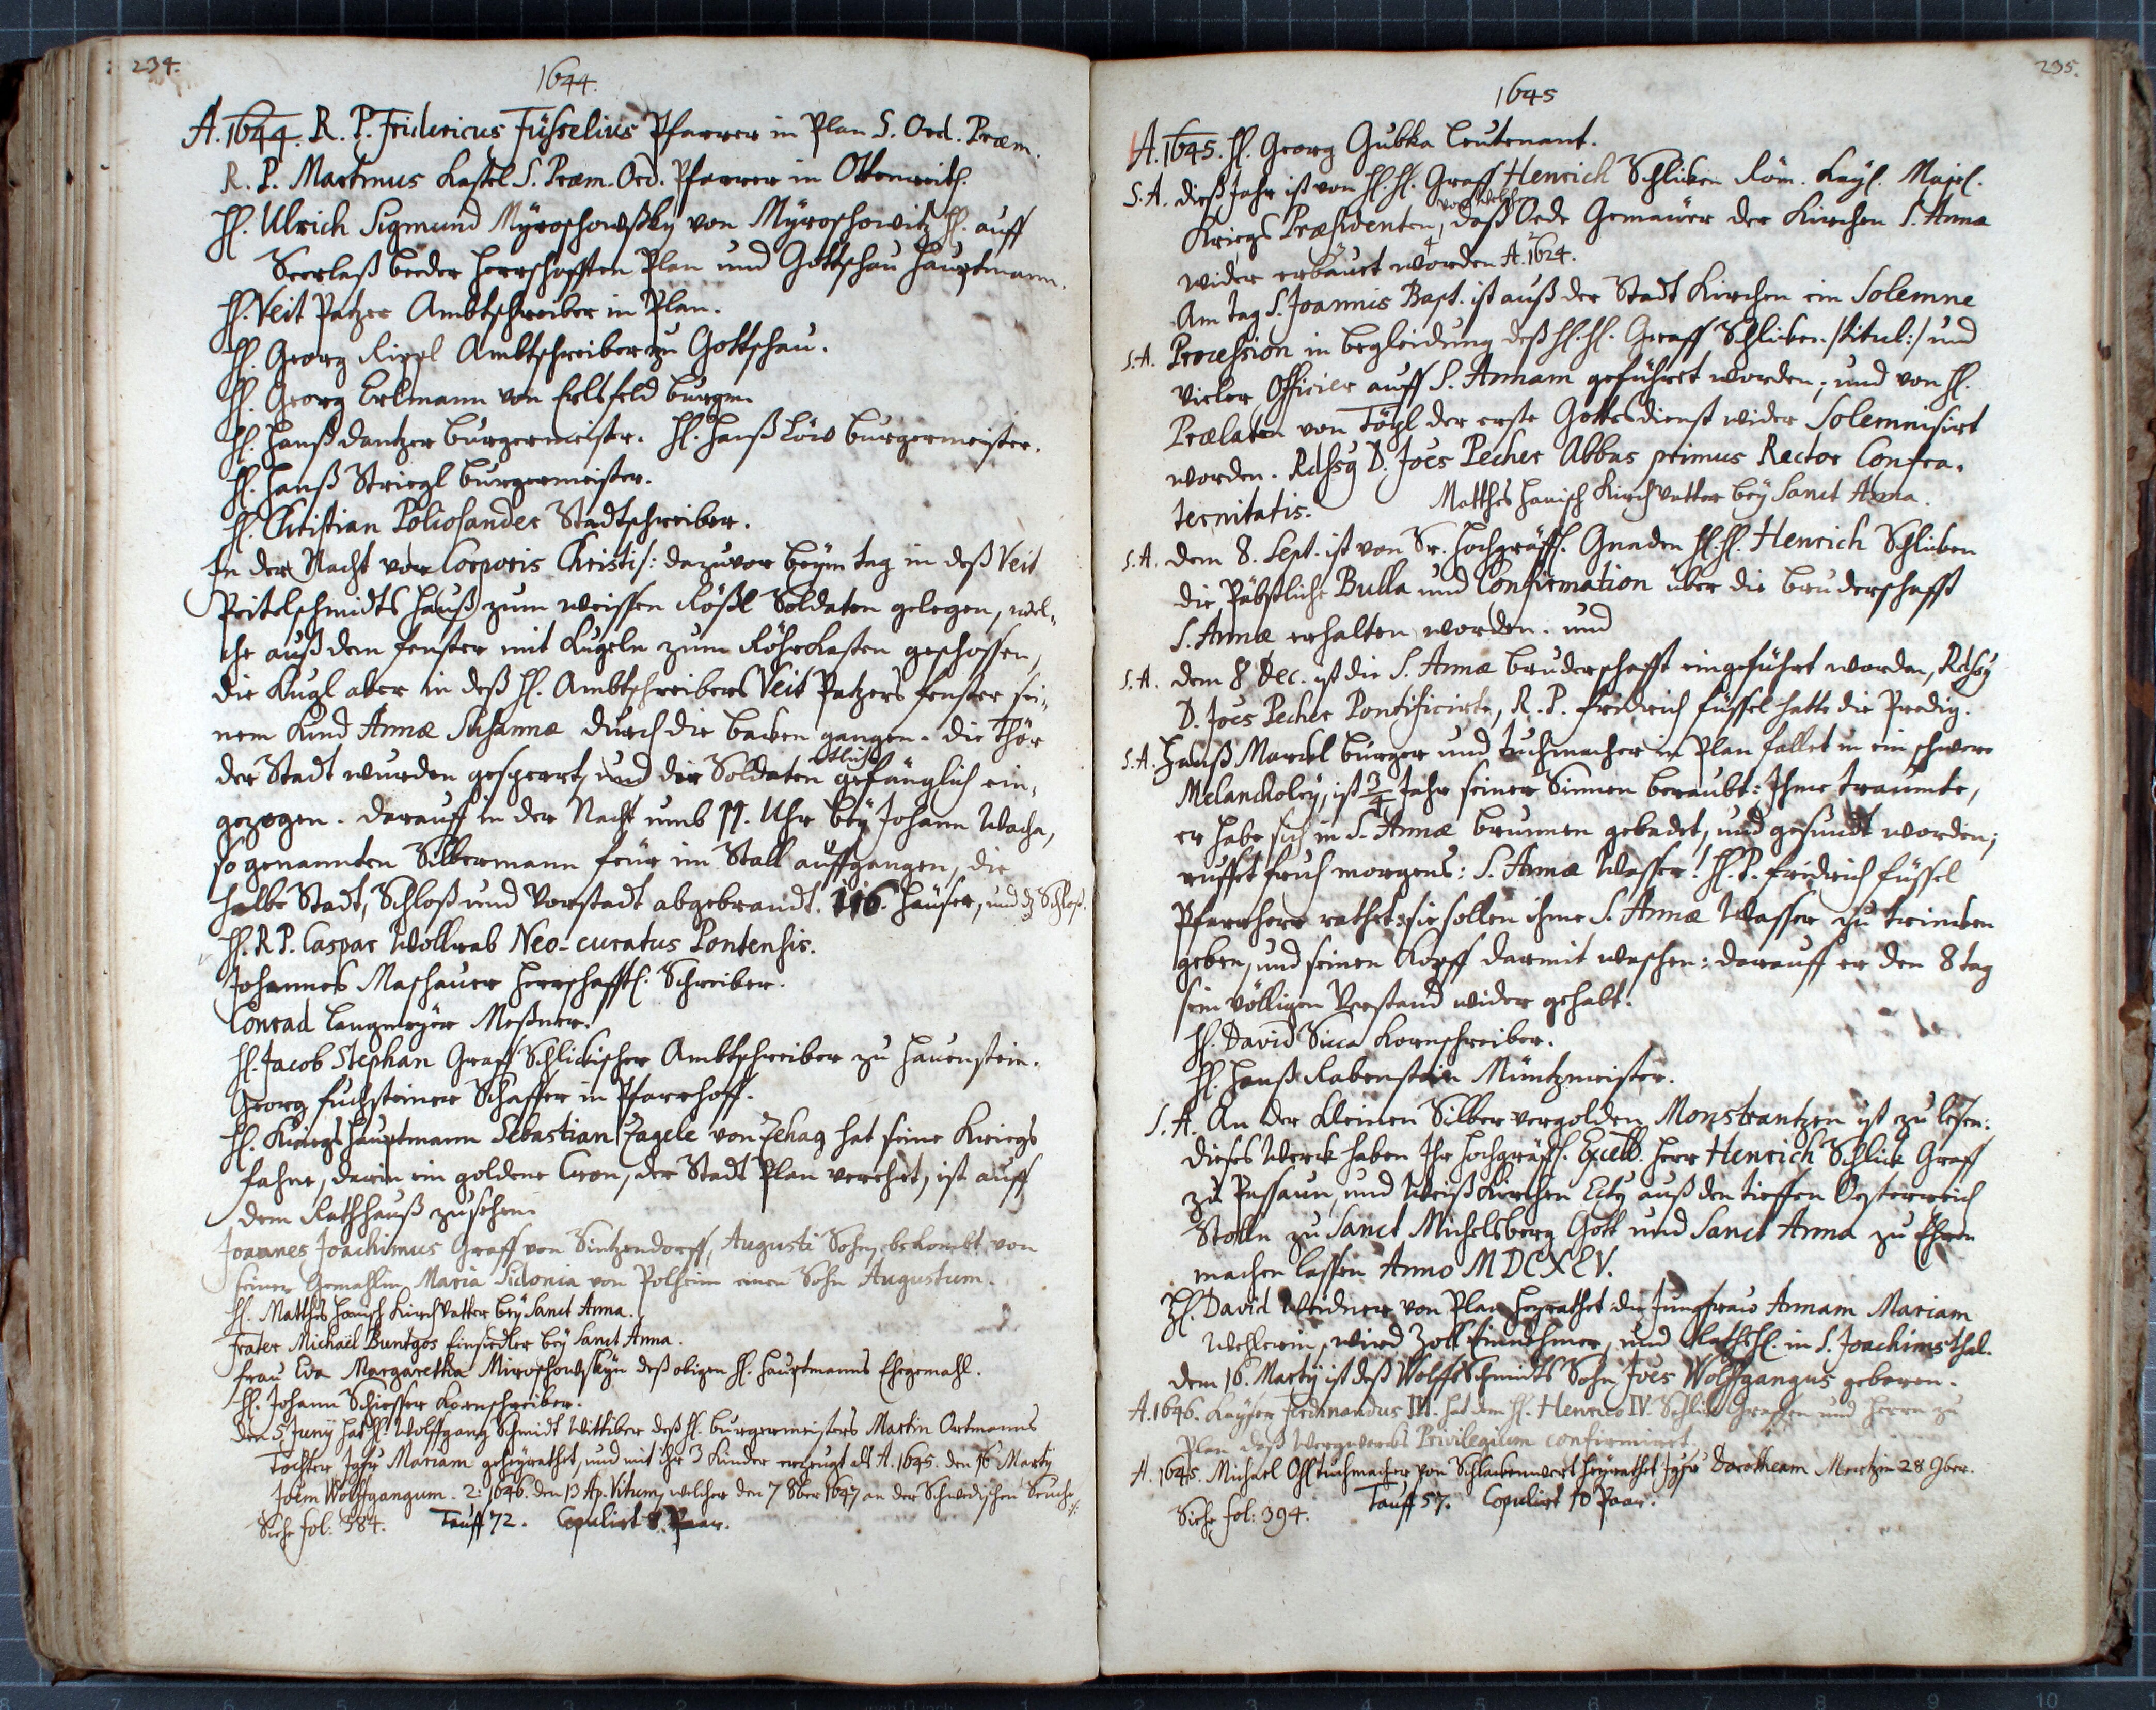 234.
1644.
A. 1644. R. P. Fridericus Füsselius Pfarrer in Plan S. Ord. Præm.
R. P. Martinus Kastel S. Præm. Ord. Pfarrer in Ottenreith.
H. Ulrich Sigmund Myroschowsky von Myroschowitz H. auff
Seerlaß beeder Herrschafften Plan und Gottschau Hauptmann.
H. Veit Patzer Ambtschreiber in Plan.
H. Georg Rippl Ambtschreiber zu Gottschau.
H. Georg Erlmann von Erlsfeld burgm.
H. Hanß Dantzer burgermeister. H. Hanß Löw burgermeister.
H. Hanß Striegl burgermeister.
H. Christian Poliosander Stadtschreiber.
In der Nacht vor Corporis Christi /: dazuvor beym tag in deß Veit
Peitelschmidts Hauß zum weissen Rößl Soldaten gelegen, wel-
che auß dem fenster mit Kugeln zum Röhrkasten geschossen,
die Kugl aber in deß H. Ambtschreibers Veit Patzers fenster sei-
nem Kind Annæ Susannæ durch die backen gangen. die Thör
der Stadt wurden gesperrt, und die Soldaten etliche gefänglich ein-
gezogen. darauff in der Nacht umb 11. Uhr bey Johann Wacha,
so genannten Silbermann feür im Stall auffgangen, die
halbe Stadt, Schloß und Vorstadt abgebrandt. 116. Häuser, und dz Schloß.
H. R. P. Caspar Wollrab Neo-curatus Pontensis.
Johannes Maschauer Herrschafftl. Schreiber.
Conrad Langmeyer Meßner.
H. Jacob Stephan Graff Schlickischer Ambtschreiber zu Hauenstein.
Georg Fuchsteiner Schaffer in Pfarrhoff.
H. Kriegs Hauptmann Sebastian Zagele von Zehag hat seine Kriegs
fahne, darin ein goldene Cron, der Stadt Plan verehrt, ist auff
dem Rathhauß zusehen.
Joannes Joachimus Graff von Sintzendorff, Augusti Sohn, bekombt von
seiner Gemahlin Maria Sidonia von Polheim einen Sohn Augustum.
H. Matthes Hanisch Kirchvatter bey Sanct Anna.
Frater Michaël Buntgos Einsiedler bey Sanct Anna.
Frau Eva Margaretha Miroschowskyn deß obigen H. Hauptmanns Ehegemahl.
H. Johann Schiesser Kornschreiber.
den 5 Juny hat H. Wolffgang Schmidt Wittiber deß H. burgermeisters Martin Ortmanns
Tochter Jgfr Mariam geheyrathet, und mit ihr 3 Kinder erzeugt als A. 1645. den 16 Marty
Joem Wolffgangum. 2: 1646. den 13 Ap. Vitum, welcher den 7 8ber 1647 an der Schwedischen Seuche :/:
Siehe fol: 384. Tauff 72. Copulirt 8 Paar.
235.
1645
A. 1645. H. Georg Gubka Leutenant.
S. A. dieß Jahr ist von H. H. Graff Henrich Schlicken Röm. Kayl. Majest.
Kriegs Præsidenten, von welchem daß Oede Gemäuer der Kirchen S. Annæ
wider erbauet worden A. 1624.
Am Tag S. Joannis Bapt. ist auß der Stadt Kirchen ein Solemne
S. A. Procession in begleidung deß H. H. Graff Schlicken /titul:/ und
vieler Officier auff S. Annam geführet worden; und von H.
Prælaten von Töpl der erste Gottesdienst wider Solemnisirt
worden. Rdssg D. Joes Pecher Abbas primus Rector Confra-
ternitatis. Matthes Hanisch Kirchvatter bey Sanct Anna.
S. A. dem 8. Sept. ist von Sr. Hochgräffl. Gnaden H. H. Henrich Schlicken
die Päbstliche Bulla und Confirmation über die bruderschafft
S. Annæ erhalten worden. und
S. A. dem 8 Dec. ist die S. Annæ bruderschafft eingeführt worden, Rdssg
D. Joes Pecher Pontificirte, R. P. Fridrich Füssel hatte die Predig.
S. A. Hanß Marckl burger und Tuchmacher in Plan fallet in ein schwere
Melancholey, ist 3/4 Jahr seiner Sinnen beraubt: Ihme traumte,
er habe sich in S. Annæ brunnen gebadet, und gesundt worden;
ruffet fruh morgens: S. Annæ Wasser! H. P. Fridrich Füssel
Pfarrherr rathet, sie sollen ihme S. Annæ Wasser zu trincken
geben, und seinen Kopff darmit waschen: darauff er den 8 tag
sein völligen Verstand wider gehabt.
H. David Sicca Kornschreiber.
H. Hanß Rabenstein Müntzmeister.
S. A. An der kleinen Silber vergolden Monstrantzen ist zu lesen:
dieses Werck haben Ihr Hochgräffl. Excell. Herr Henrich Schlick Graff
zu Passaun, und Weißkirchen Etc auß den tieffen Oesterreich
Stolln zu Sanct Michelsberg Gott und Sanct Anna zu Ehren
machen lassen Anno MDCXLV.
H. David Weidner von Plan heyrathet die Jungfraw Annam Mariam
Wehlerin, wird Zoll Einnehmer, und Rathsh. in S. Joachimsthal.
dem 16. Marty ist deß Wolff Schmidts Sohn Joes Wolffgangus geboren.
A. 1646. Kayser Ferdinandus III. hat dem H. Henrico IV. Schlick Graffen und Herrn zu
Plan daß Bergwercks Privilegium confirmiret.
A. 1645. Michael Ohl tuchmacher von Schlackenwert heyrathet Jgfr Dorotheam Mertzin 28 9ber.
Siehe fol: 394. Tauff 57. Copulirt 10 Paar.